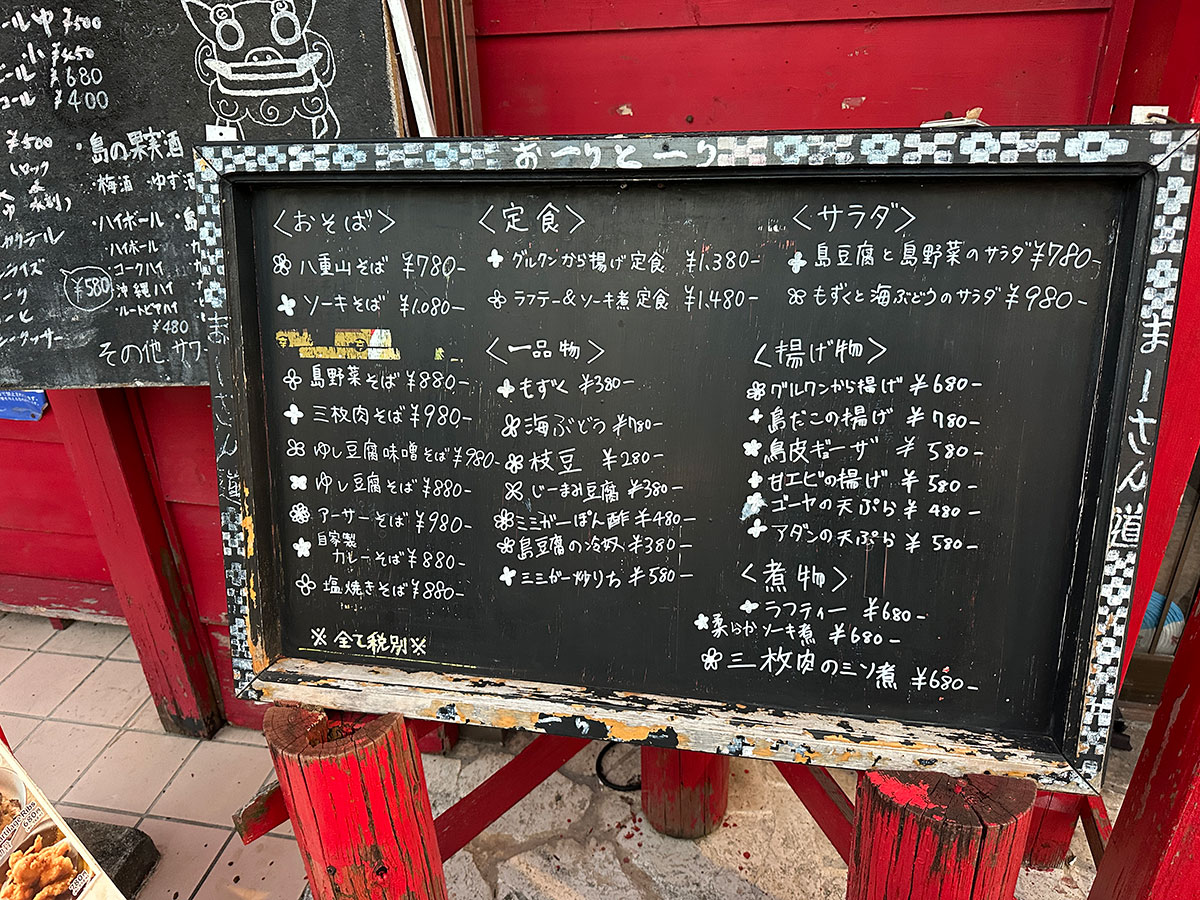 ¥500
¥450
¥680
¥400
¥500
(ロック
水割)
¥580
・島の果実酒
・梅酒・ゆず酒
・ハイボール
ハイボール
コークハイ
沖縄ハイ
・ルートビアハイ
¥480
その他サワー
おーりとーり
まーさん道
まーさん道
<おそば>
八重山そば ¥780-
ソーキそば ¥1.080-
島野菜そば ¥880-
三枚肉そば ¥980-
ゆし豆腐味噌そば ¥980-
ゆし豆腐そば ¥880-
アーサーそば ¥980-
自家製
カレーそば ¥880-
塩焼きそば ¥880-
※全て税別※
<定食>
グルクンから揚げ定食 ¥1.380-
ラフテー&ソーキ煮定食 ¥1.480-
<一品物>
もずく ¥380-
海ぶどう ¥780-
枝豆 ¥280-
じーまみ豆腐 ¥380-
ミミガーぽん酢 ¥480-
島豆腐の冷奴 ¥380-
ミミガー炒りち ¥580-
<サラダ>
島豆腐と島野菜のサラダ ¥780-
もずくと海ぶどうのサラダ ¥980-
<揚げ物>
グルクンから揚げ ¥680-
島だこの揚げ ¥780-
鳥皮ギーザ ¥580-
甘エビの揚げ ¥580-
ゴーヤの天ぷら ¥480-
アダンの天ぷら ¥580-
<煮物>
ラフティー ¥680-
柔らかソーキ煮 ¥680-
三枚肉のミソ煮 ¥680-